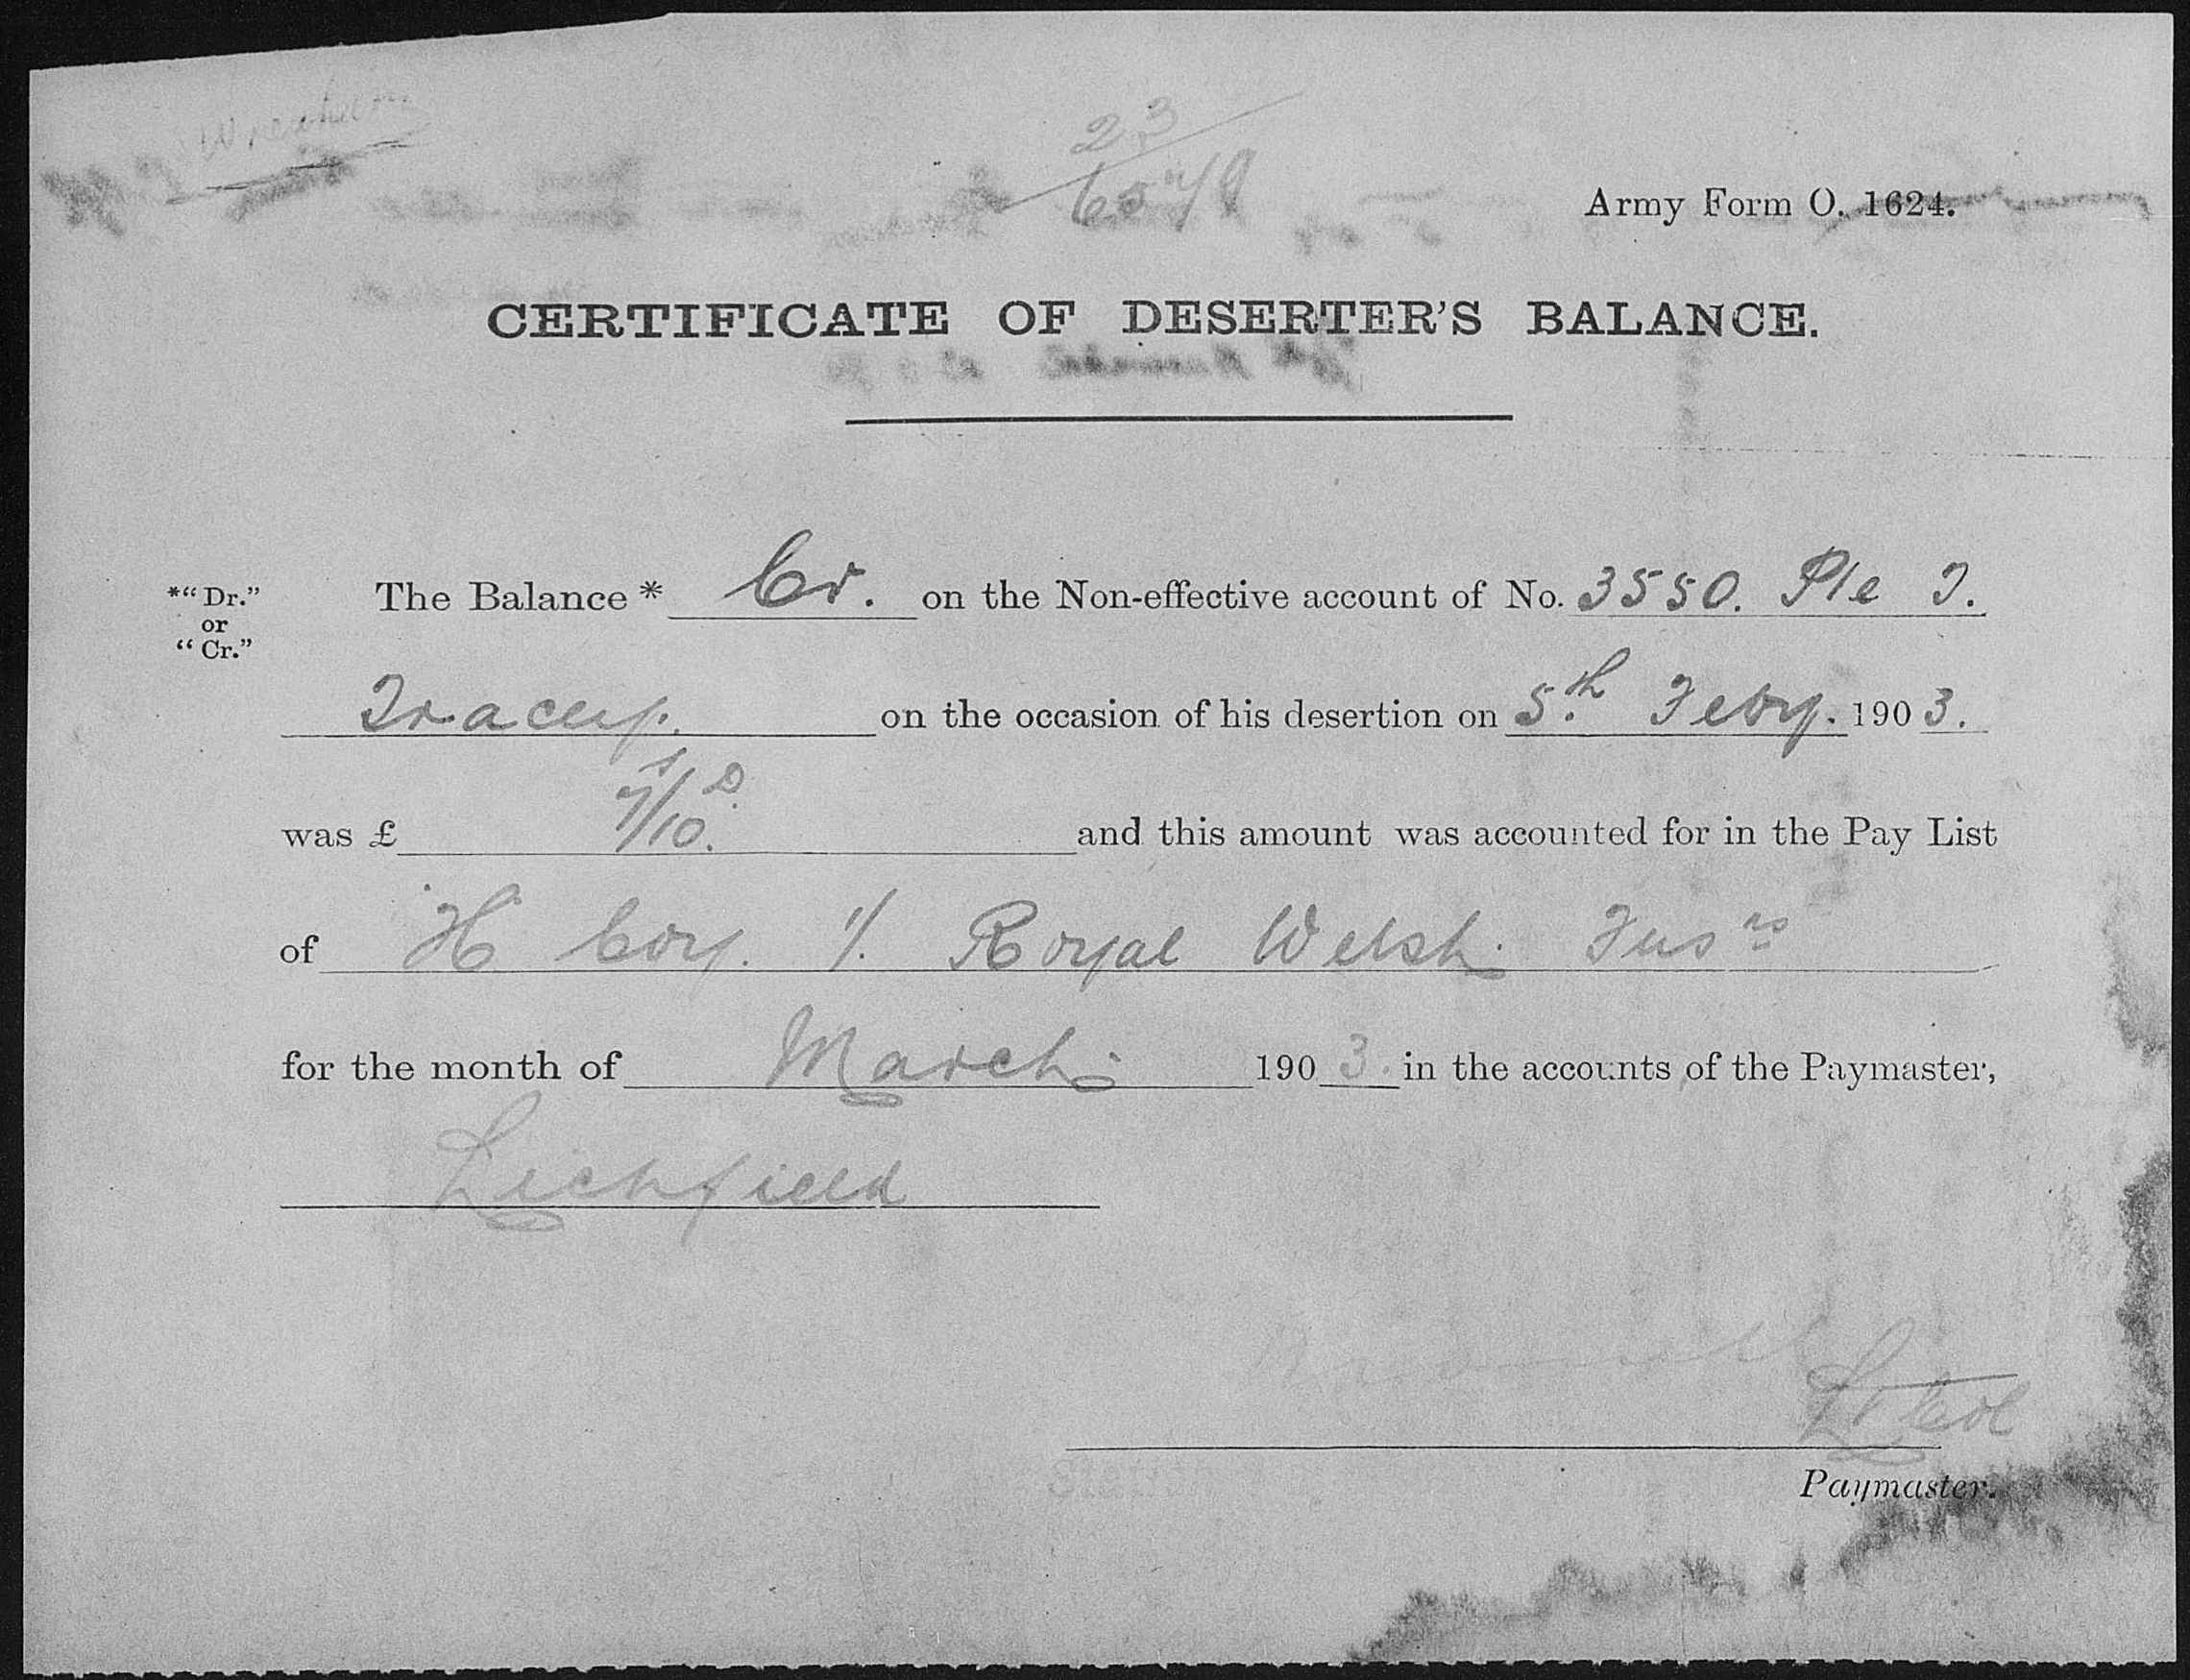 Wrexham
23
6579
Army Form O. 1624.
CERTIFICATE OF DESERTER'S BALANCE.
*"Dr." or "Cr."
The Balance * Cr. on the Non-effective account of No. 3550. Pte T.
Tracey. on the occasion of his desertion on 5th Feby. 1903.
was £ 7s/10D. and this amount was accounted for in the Pay List
of H Coy. 1/. Royal Welsh Fusrs
for the month of March 1903. in the accounts of the Paymaster,
Lichfield
Lt Col
Paymaster.